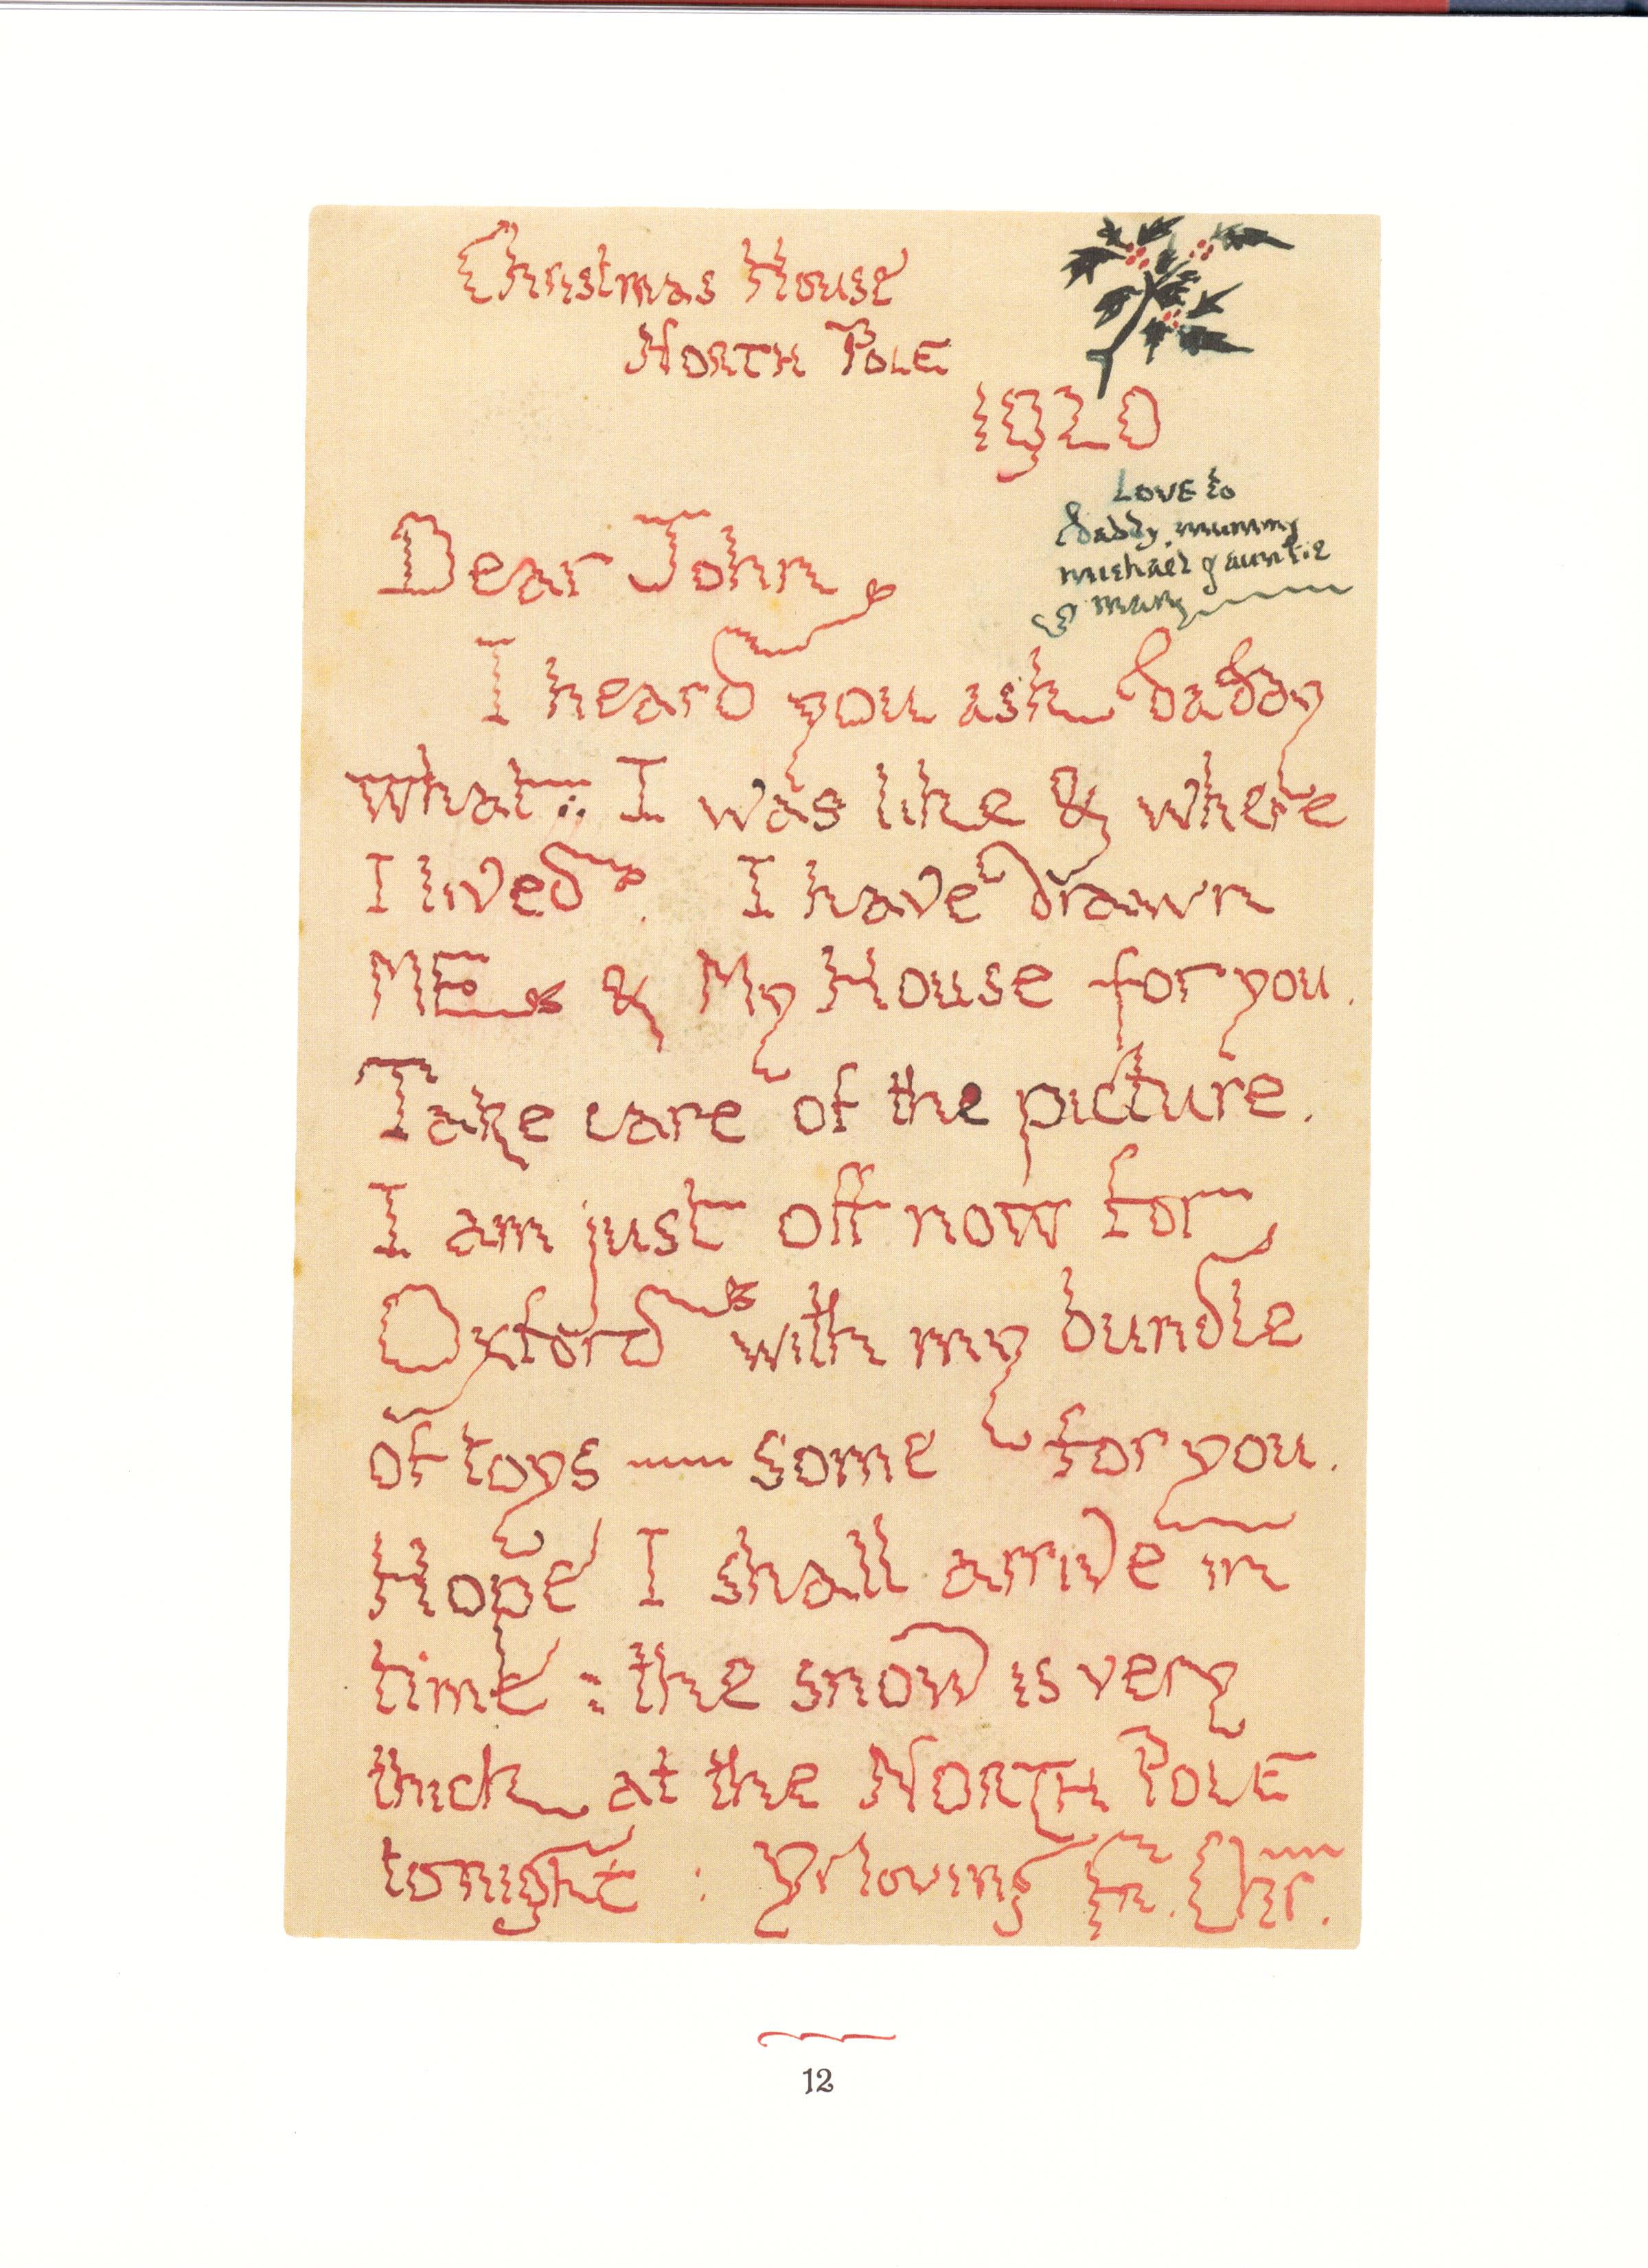 Christmas House
NORTH POLE
1920
LOVE to
daddy, mummy
michael & auntie
mary
Dear John,
I heard you ask daddy
what I was like & where
I lived. I have drawn
ME & My House for you.
Take care of the picture.
I am just off now for
Oxford with my bundle
of toys — some for you.
Hope I shall arrive in
time : the snow is very
thick at the NORTH POLE
tonight : Yr loving Fr. Chr.
12